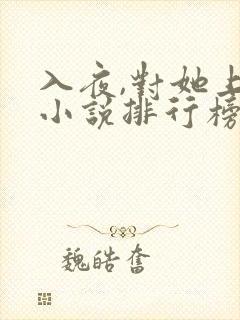 入夜,對她上
小說排行榜
魏皓奮